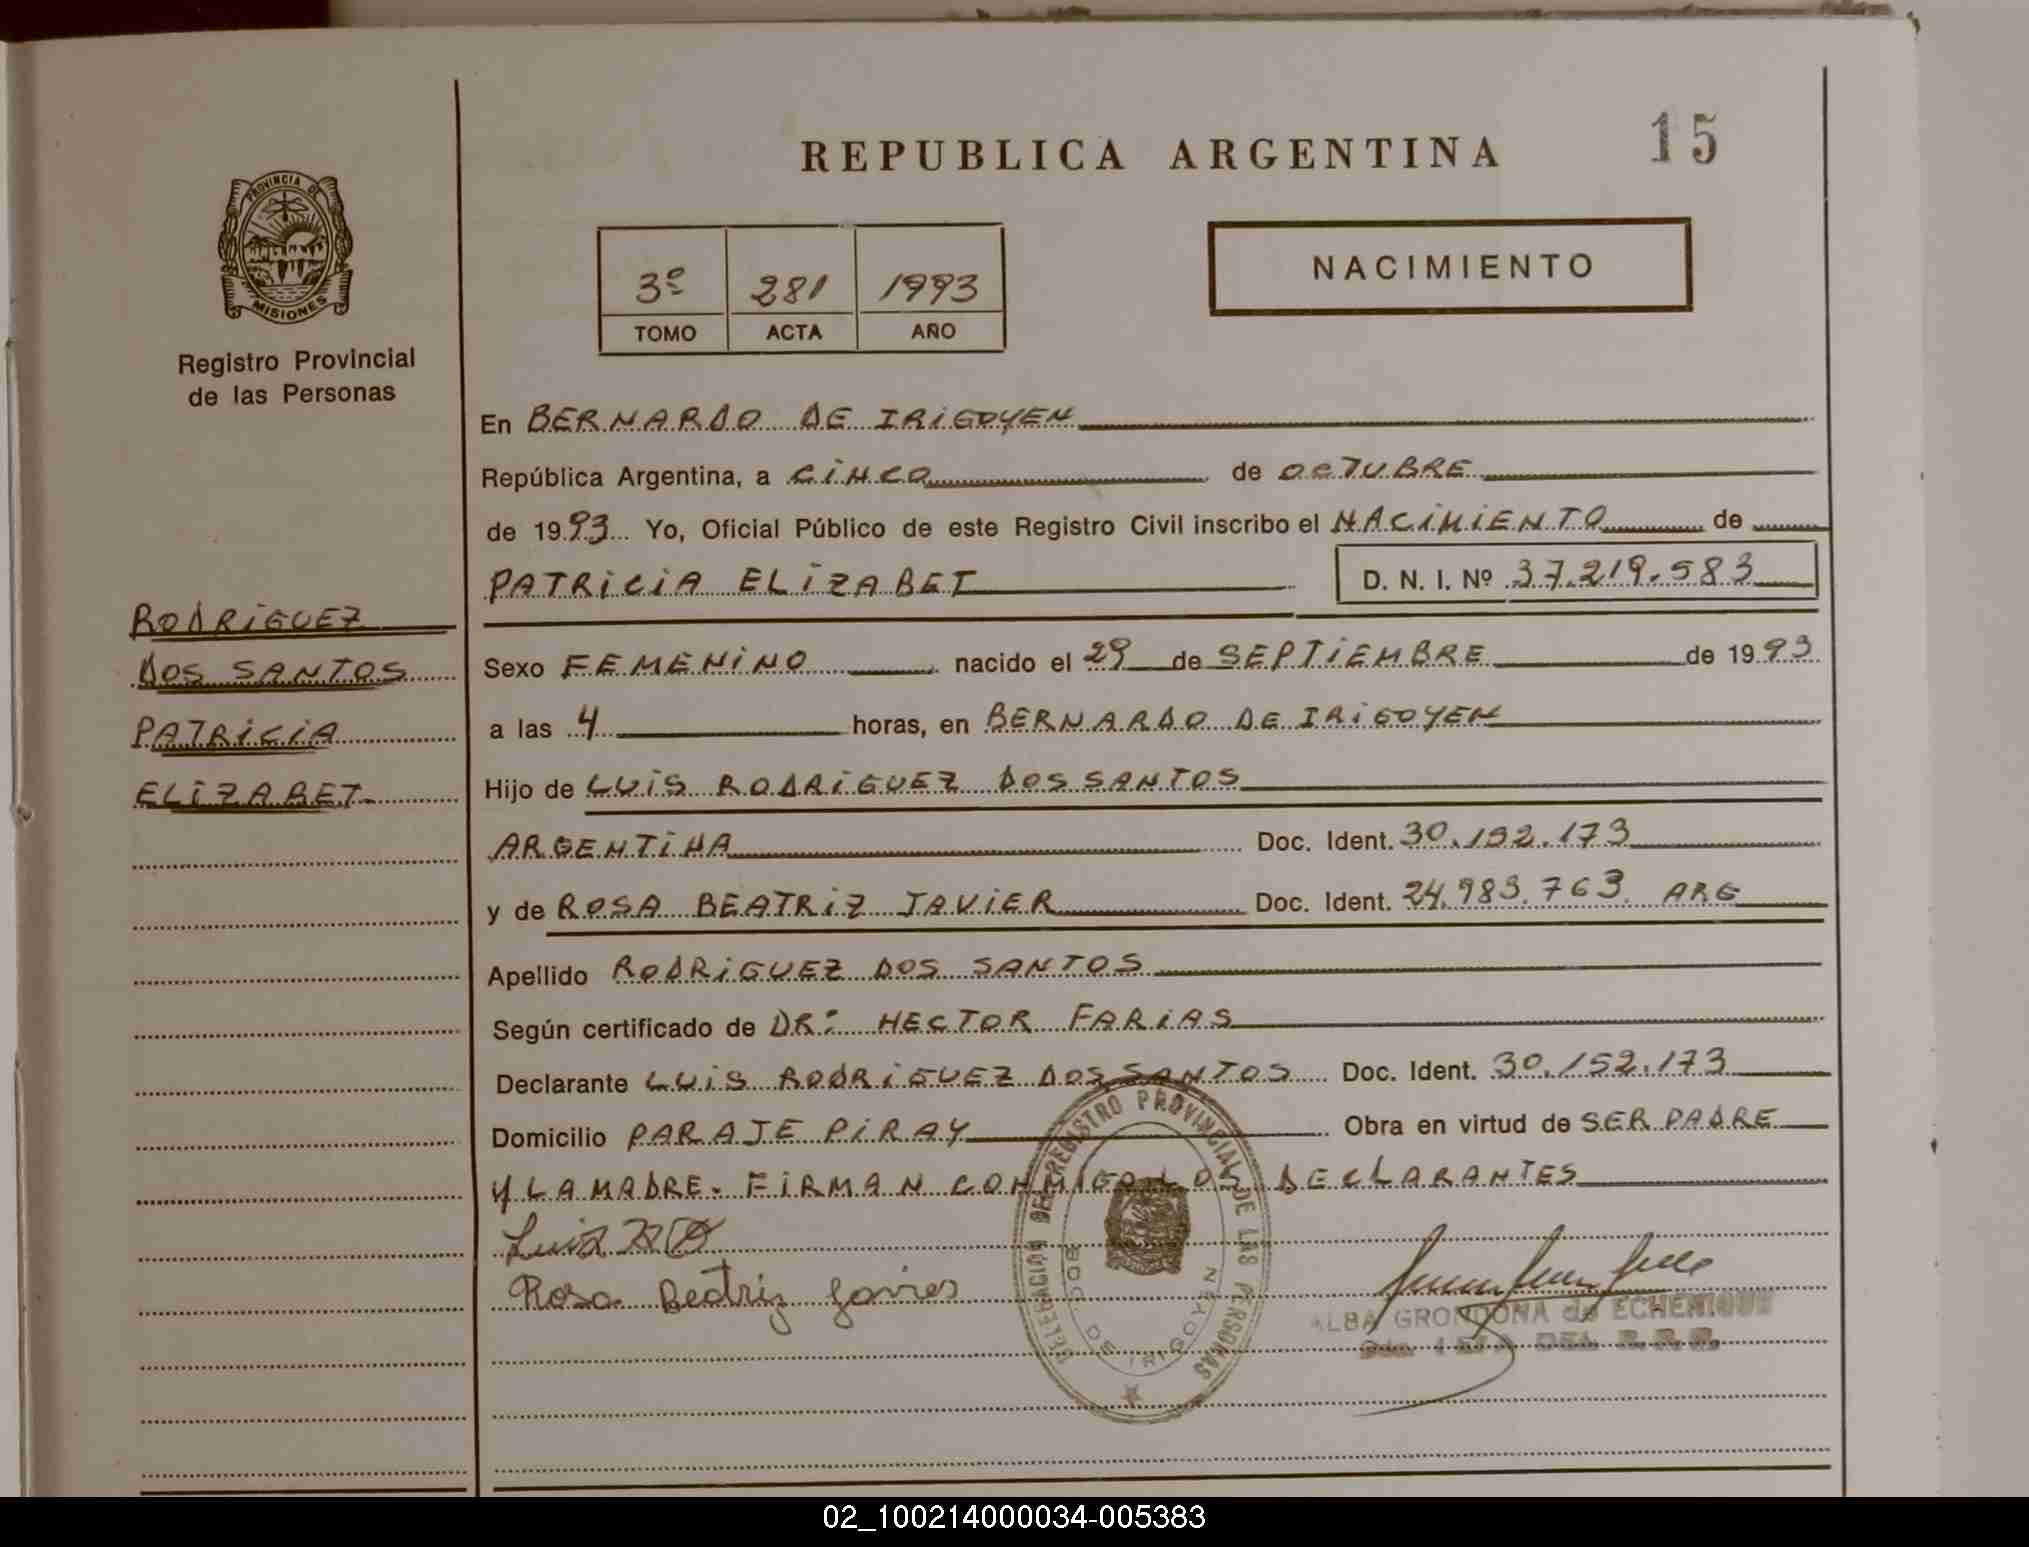 REPUBLICA ARGENTINA
15
PROVINCIA DE
MISIONES
Registro Provincial
de las Personas
3º 281 1993
TOMO ACTA AÑO
NACIMIENTO
En BERNARDO DE IRIGOYEN
República Argentina, a CINCO de OCTUBRE
de 1993 Yo, Oficial Público de este Registro Civil inscribo el NACIMIENTO de
PATRICIA ELIZABET D. N. I. Nº 37.219.583
RODRIGUEZ
DOS SANTOS
PATRICIA
ELIZABET
Sexo FEMENINO nacido el 29 de SEPTIEMBRE de 1993
a las 4 horas, en BERNARDO DE IRIGOYEN
Hijo de LUIS RODRIGUEZ DOS SANTOS
ARGENTINA Doc. Ident. 30.152.173
y de ROSA BEATRIZ JAVIER Doc. Ident. 24.983.763. ARG
Apellido RODRIGUEZ DOS SANTOS
Según certificado de DR: HECTOR FARIAS
Declarante LUIS RODRIGUEZ DOS SANTOS Doc. Ident. 30.152.173
Domicilio PARAJE PIRAY Obra en virtud de SER PADRE
Y LA MADRE. FIRMAN CONMIGO LOS DECLARANTES
Luis
Rosa Beatriz Javier
DELEGACION DEL REGISTRO PROVINCIAL DE LAS PERSONAS
BDO DE IRIGOYEN
ALBA GRONDONA de ECHENIQUE
02_100214000034-005383